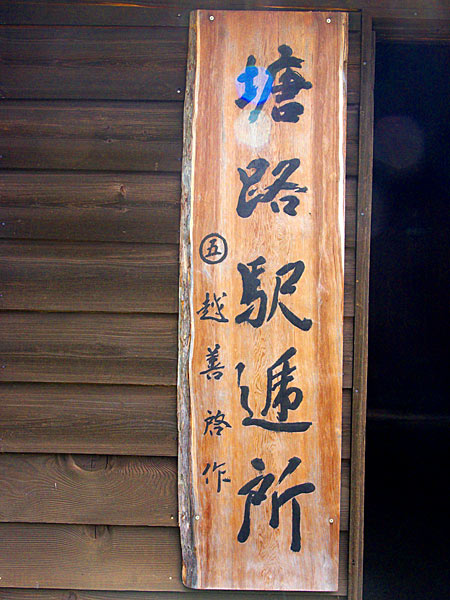 塘路駅逓所
㊄越善啓作